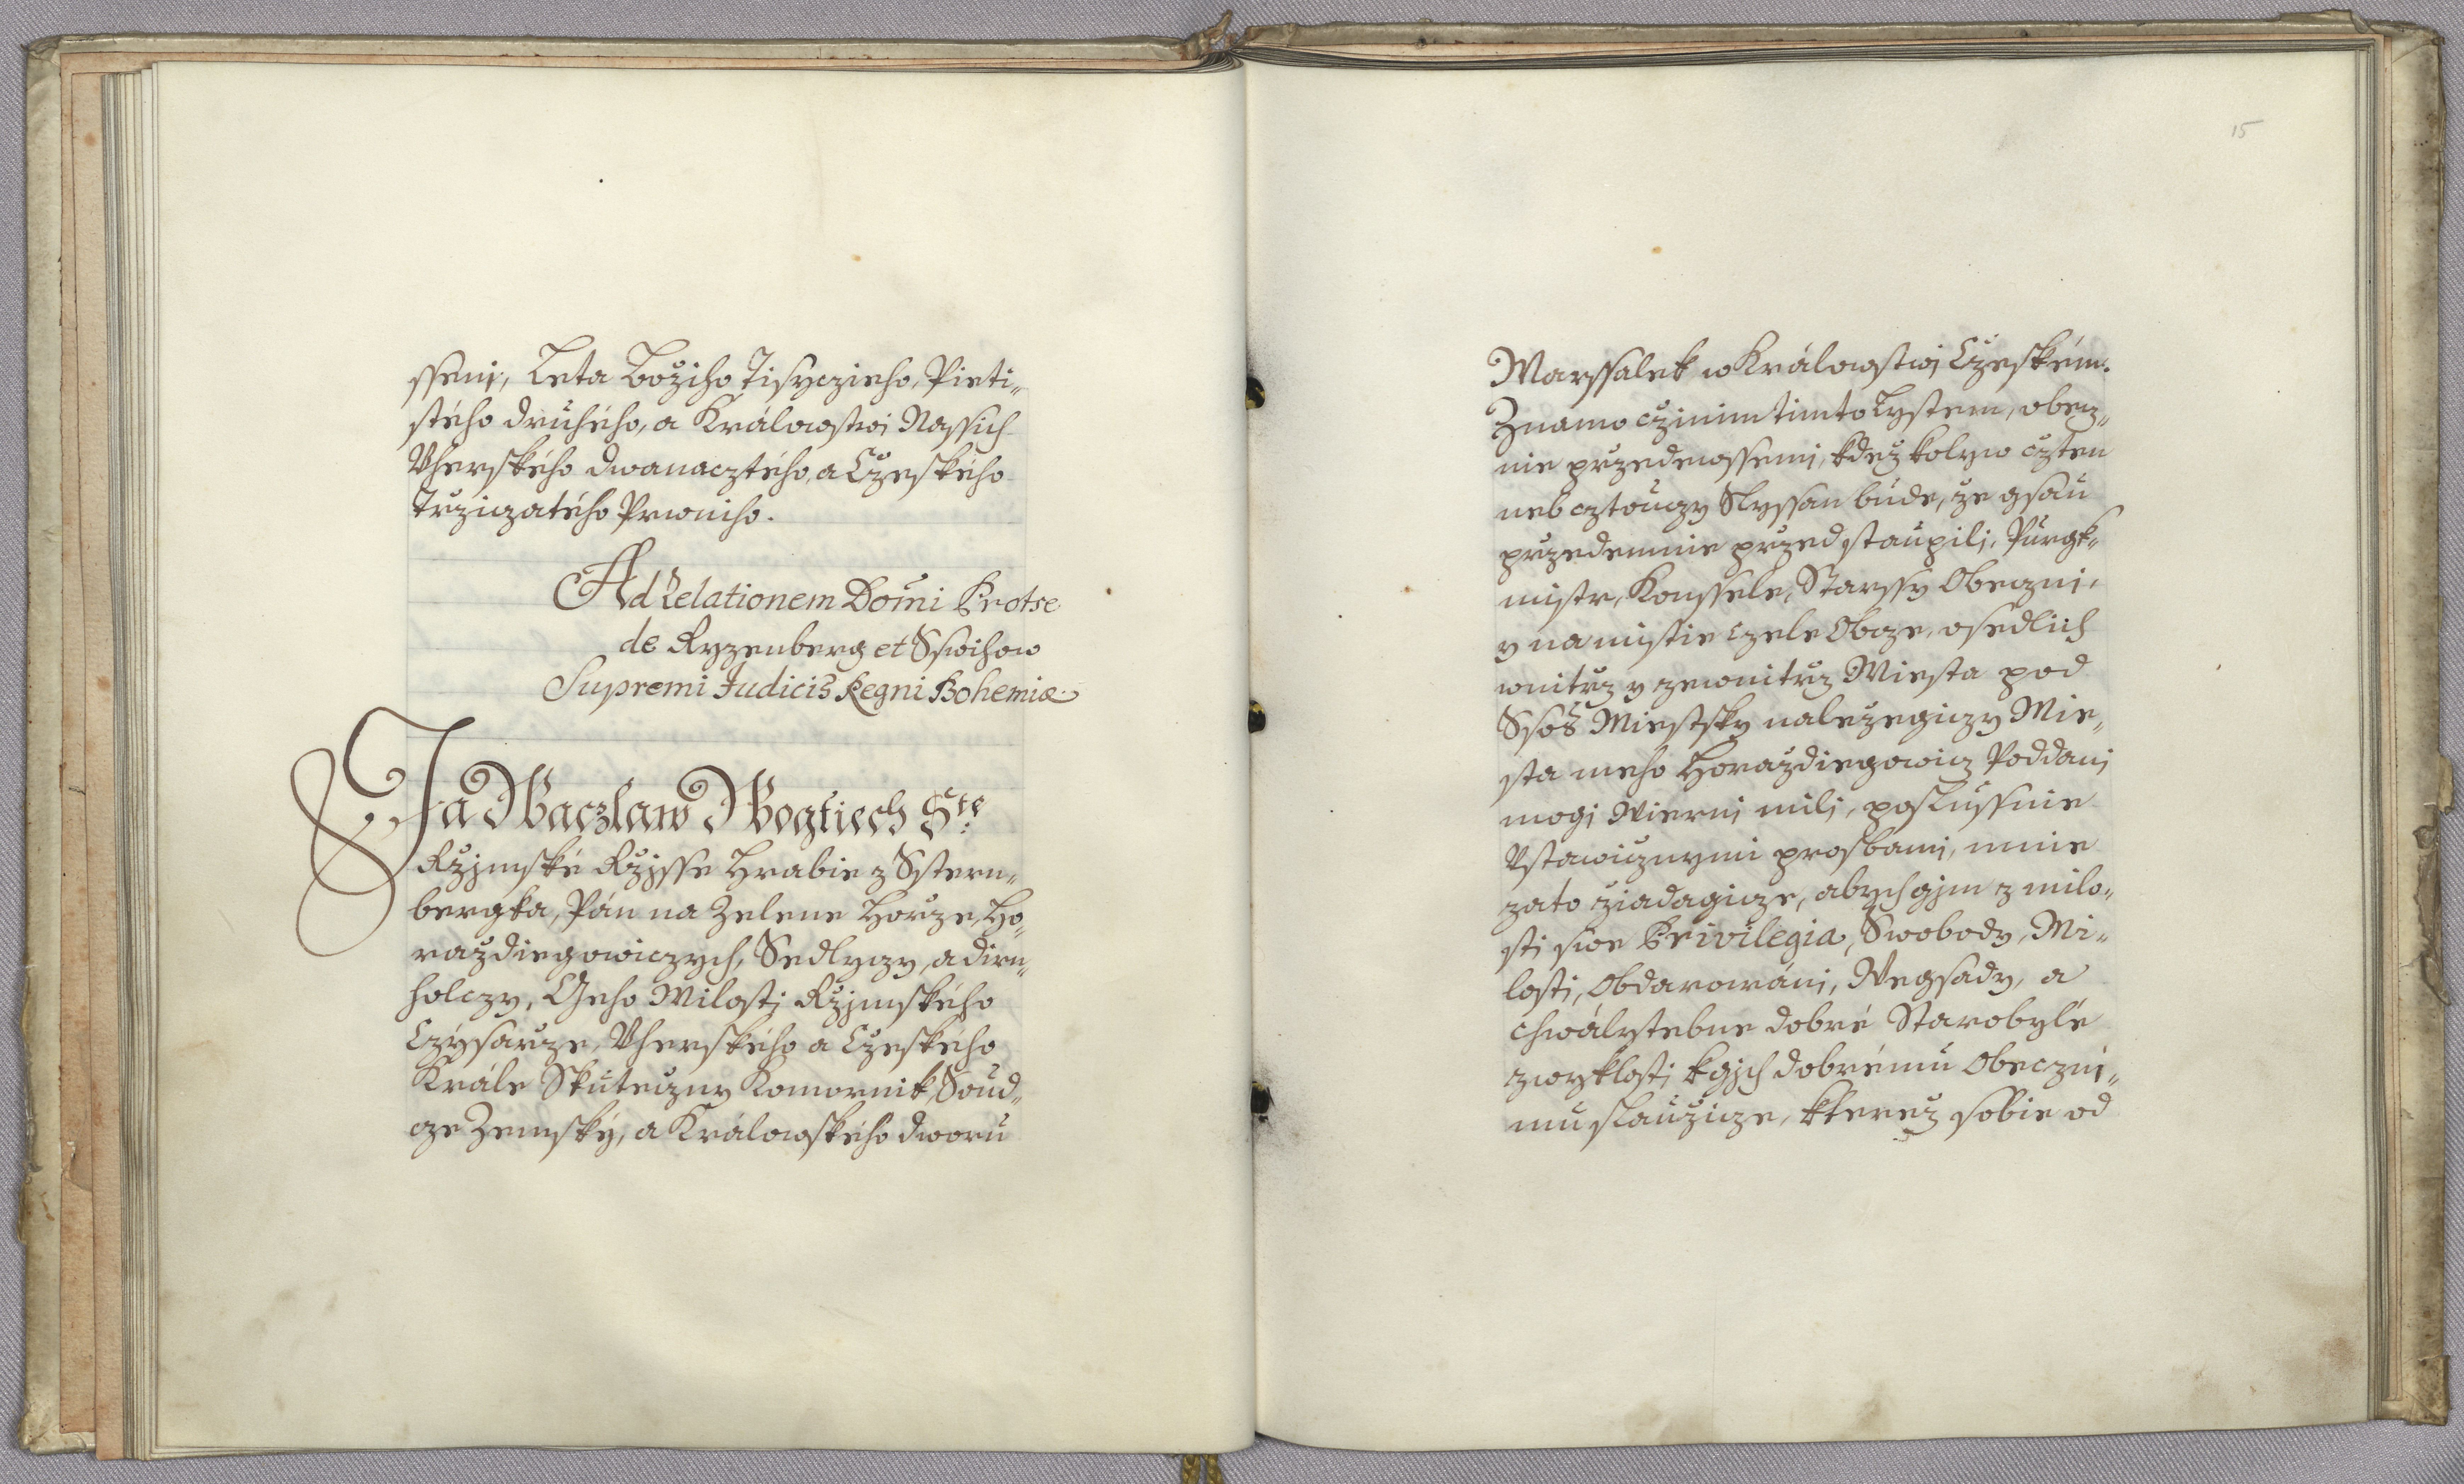 sseni, Leta Božiho Tisyczieho, Pieti„
stého druhého, a Králowstwi Nassich
Vherského dwanacztého, a Czeského
Trziczatého Prwniho.
Ad Relationem Domi Protse
de Ryzenberg et Sswihow
Supremi Judicis Regni Bohemiæ.
Ja Waczlaw Wogtiech Ste:
Ržjmské Ržjsse Hrabie z Sstern„
bergka, Pán na Zelene Horze, Ho„
raždiegowiczych, Sedlyczy, a dirn„
holczy, Geho Milosti Ržjmského
Czýsarze, Vherského a Czeského
Krále Skuteczny Komornik, Soud„
cze Zemský, a Králowského dworu
15
Marssalek w Králowstwi Czeském.
Znamo czinim timto Lystem, obecz„
nie przedewssemi, kdež kolyw czten
neb cztouczy Slyssan bude, že gsau
przedemnie przedstaupili, Purgk„
mistr, Konssele, Starssy Obeczni,
y na mistie czele Obcze, osedlich
wnitrz y zewnitrz Miesta pod
Ssos Miestsky naležegiczy Mie„
sta meho Horaždiegowicz Poddani
mogi Wierni mili, poslussnie
Vstawicznymi prosbami, mnie
zato žiadagicze, abych gim z milo„
sti swe Privilegia, Swobody, Mi„
losti, Obdarowáni, Wegsady, a
chwálytebne dobré Starobylé
zwyklosti kgich dobrému Obeczni„
mu slaužicze, kterež sobie od